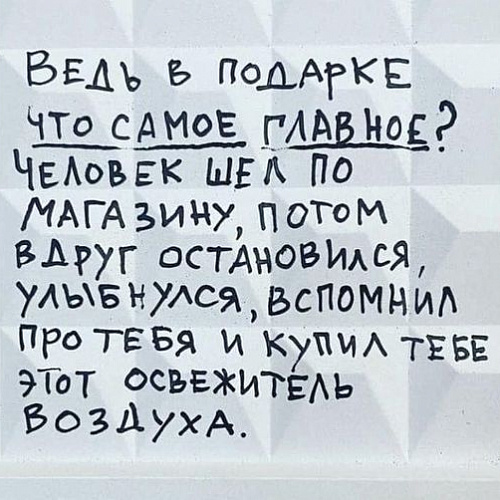 ВЕДЬ В ПОДАРКЕ
ЧТО САМОЕ ГЛАВНОЕ?
ЧЕЛОВЕК ШЕЛ ПО
МАГАЗИНУ, ПОТОМ
ВДРУГ ОСТАНОВИЛСЯ,
УЛЫБНУЛСЯ, ВСПОМНИЛ
ПРО ТЕБЯ И КУПИЛ ТЕБЕ
ЭТОТ ОСВЕЖИТЕЛЬ
ВОЗДУХА.